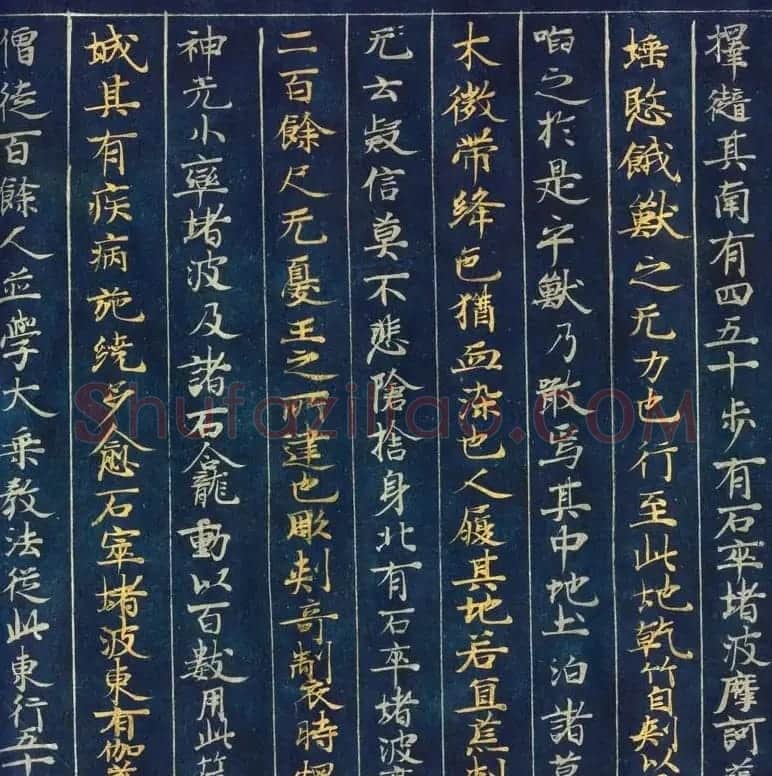 其南有四五十步有石卒堵波摩訶
埵愍餓獸之无力也行至此地乾竹自刺以
啗之於是乎獸乃噉焉其中地土洎諸草
木微帶絳色猶血染也人履其地若
无云疑信莫不悲愴捨身北有石卒堵波
二百餘尺无憂王之所建也彫刻奇製時燭
神光小窣堵波及諸石龕動以百數用此
域其有疾病旋繞多愈石窣堵波東有伽藍
僧徒百餘人並學大乘教法從此東行五十
Shufaziliao.COM